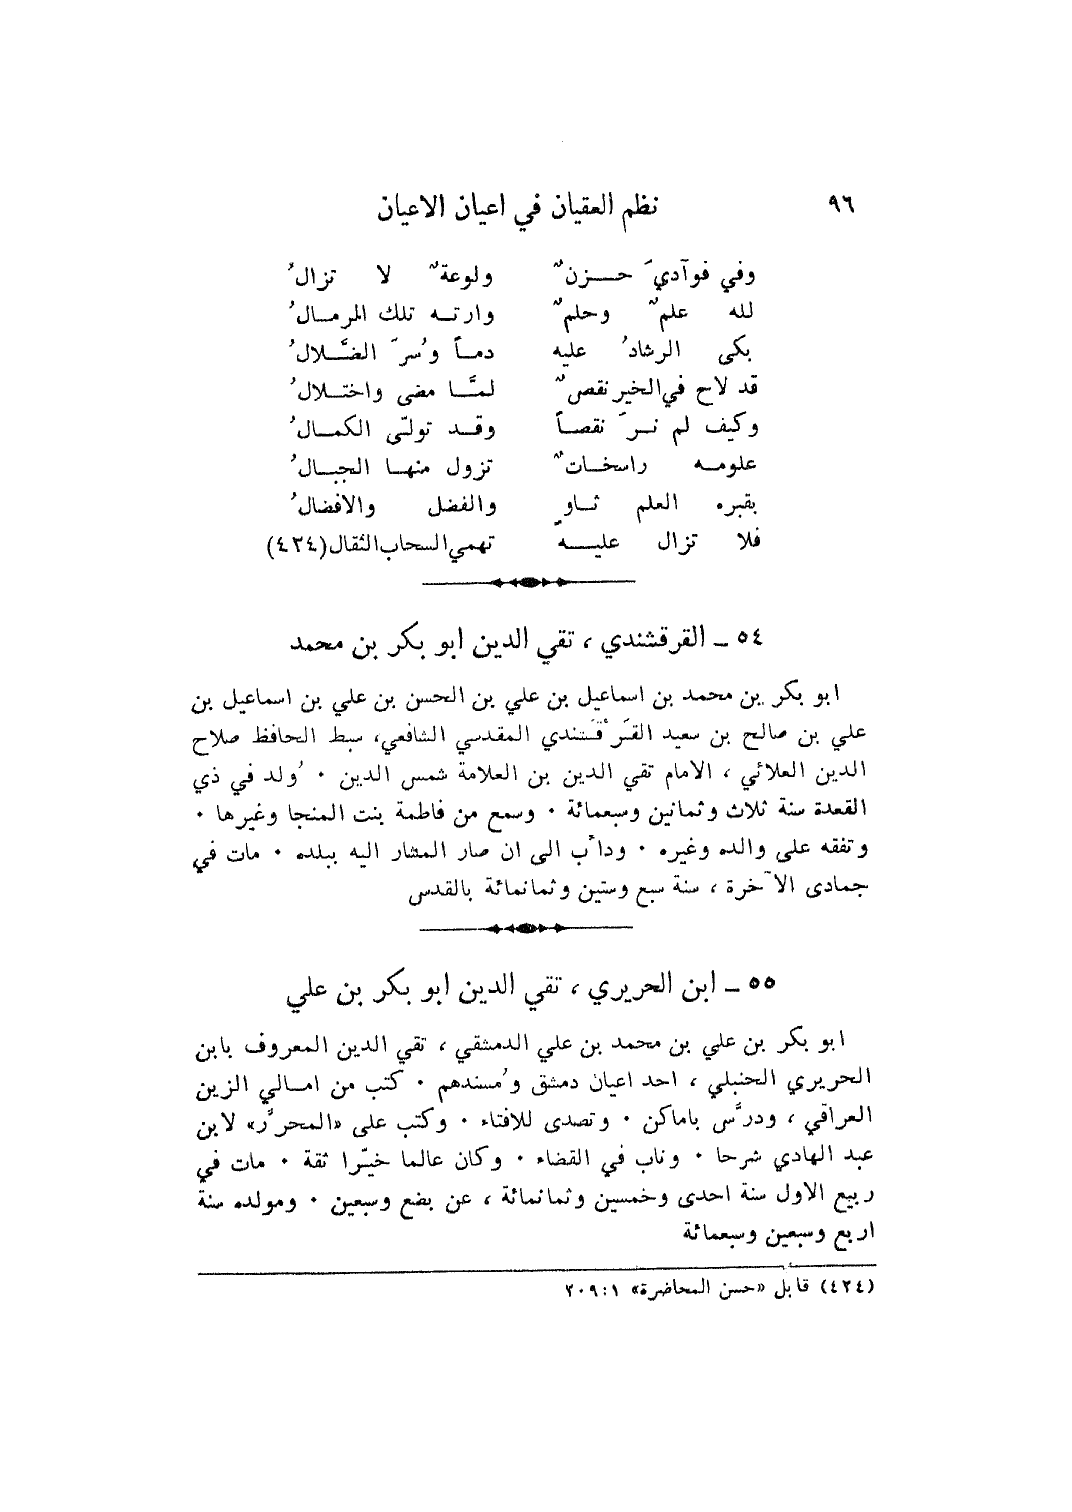 ٩٦ نظم العقيان في اعيان الاعيان
وفي فوآدي َ حــزن ٌ ولوعة ٌ لا تزال ُ
لله علم ٌ وحلم ٌ وارتــه تلك الرمــال ُ
بكى الرشاد ُ عليه دمــاً و ُسر َ الضَّــلال ُ
قد لاح في الخير نقص ٌ لمَّــا مضى واختــلال ُ
وكيف لم نــر َ نقصــاً وقــد تولّى الكمــال ُ
علومــه راسخــات ٌ تزول منهــا الجبــال ُ
بقبره العلم ثــاو ٍ والفضل والافضال ُ
فلا تزال عليــه تهمي السحاب الثقال (٤٢٤)
٥٤ ــ القرقشندي ، تقي الدين ابو بكر بن محمد
ابو بكر بن محمد بن اسماعيل بن علي بن الحسن بن علي بن اسماعيل بن
علي بن صالح بن سعيد القَر ْقَشَندي المقدسي الشافعي، سبط الحافظ صلاح
الدين العلائي ، الامام تقي الدين بن العلامة شمس الدين ٠ ُولد في ذي
القعدة سنة ثلاث وثمانين وسبعمائة ٠ وسمع من فاطمة بنت المنجا وغيرها ٠
وتفقه على والده وغيره ٠ ودأب الى ان صار المشار اليه ببلده ٠ مات في
جمادى الآخرة ، سنة سبع وستين وثمانمائة بالقدس
٥٥ ــ ابن الحريري ، تقي الدين ابو بكر بن علي
ابو بكر بن علي بن محمد بن علي الدمشقي ، تقي الدين المعروف بابن
الحريري الحنبلي ، احد اعيان دمشق و ُمسندهم ٠ كتب من امــالي الزين
العراقي ، ودرَّس باماكن ٠ وتصدى للافتاء ٠ وكتب على «المحرَّر» لابن
عبد الهادي شرحا ٠ وناب في القضاء ٠ وكان عالما خيّرا ثقة ٠ مات في
ربيع الاول سنة احدى وخمسين وثمانمائة ، عن بضع وسبعين ٠ ومولده سنة
اربع وسبعين وسبعمائة
(٤٢٤) قابل «حسن المحاضرة» ١:٢٠٩